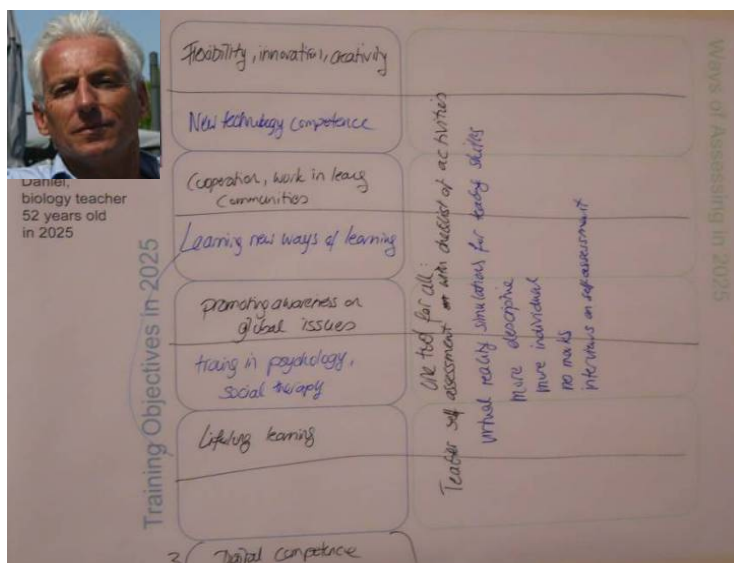 Daniel,
biology teacher
52 years old
in 2025
Training Objectives in 2025
Flexibility, innovation, creativity
New technology competence
Cooperation, work in
communities
Learning new ways of learning
promoting awareness on
global issues
in psychology,
social therapy
Lifelong learning
Digital competence
Ways of Assessing in 2025
One tool for all:
Teacher self assessment with checklist of activities
virtual reality simulations for skills
more descriptive
more individual
no marks
interviews on self assessment